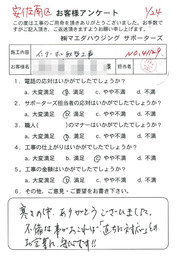 安佐南区 お客様アンケート 1/24
この度は工事のご用命を頂きありがとうございました。お手数で
すがご記入頂き、ご返送頂きますようお願い申し上げます。
㈱マエダハウジング サポーターズ
施工内容 インターホン取替工事 NO.
お客様名 担当者名
1. 電話の応対はいかがでしたでしょうか?
A. 大変満足 B. 満足 C. やや不満 d. 不満
2. サポーターズ担当者の応対はいかがでしたでしょうか?
A. 大変満足 B. 満足 C. やや不満 d. 不満
3. 職人( )のマナーはいかがでしたでしょうか?
A. 大変満足 B. 満足 C. やや不満 d. 不満
4. 工事の品質はいかがでしたでしょうか?
A. 大変満足 B. 満足 C. やや不満 d. 不満
5. 工事の金額はいかがでしたでしょうか?
A. 大変満足 B. 満足 C. やや不満 d. 不満
6. その他、ご意見・ご要望をお書き下さい。
寒さの中、ありがとうございました。
不備は事があれば「直ちに対応」の
お言葉に、安心です!!